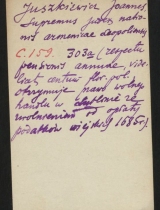 Juszkiewicz Joannes
supremus judex natio
nis armenicae leopoliensis
C.159. 303a/ respectu
pensionis annuae, vide
licet centum flor. pol.
otrzymuje prawo wolnego
handlu w
zwolnieniem od opłaty
podatków miejskich 1685r.